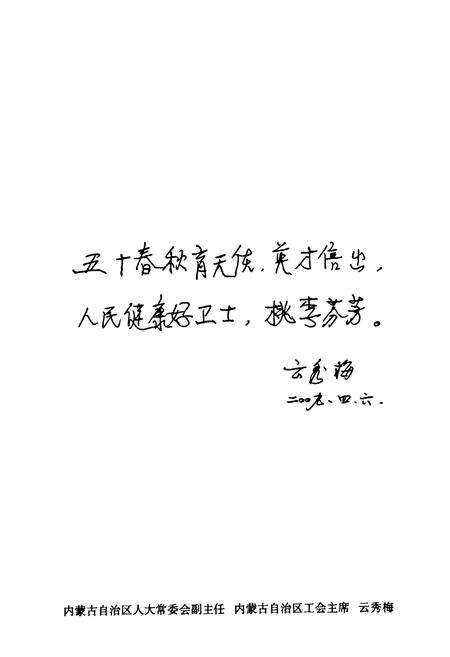 五十春秋育天使，英才倍出，
人民健康好卫士，桃李芬芳。
云秀梅
二〇〇九、四、六.
内蒙古自治区人大常委会副主任 内蒙古自治区工会主席 云秀梅